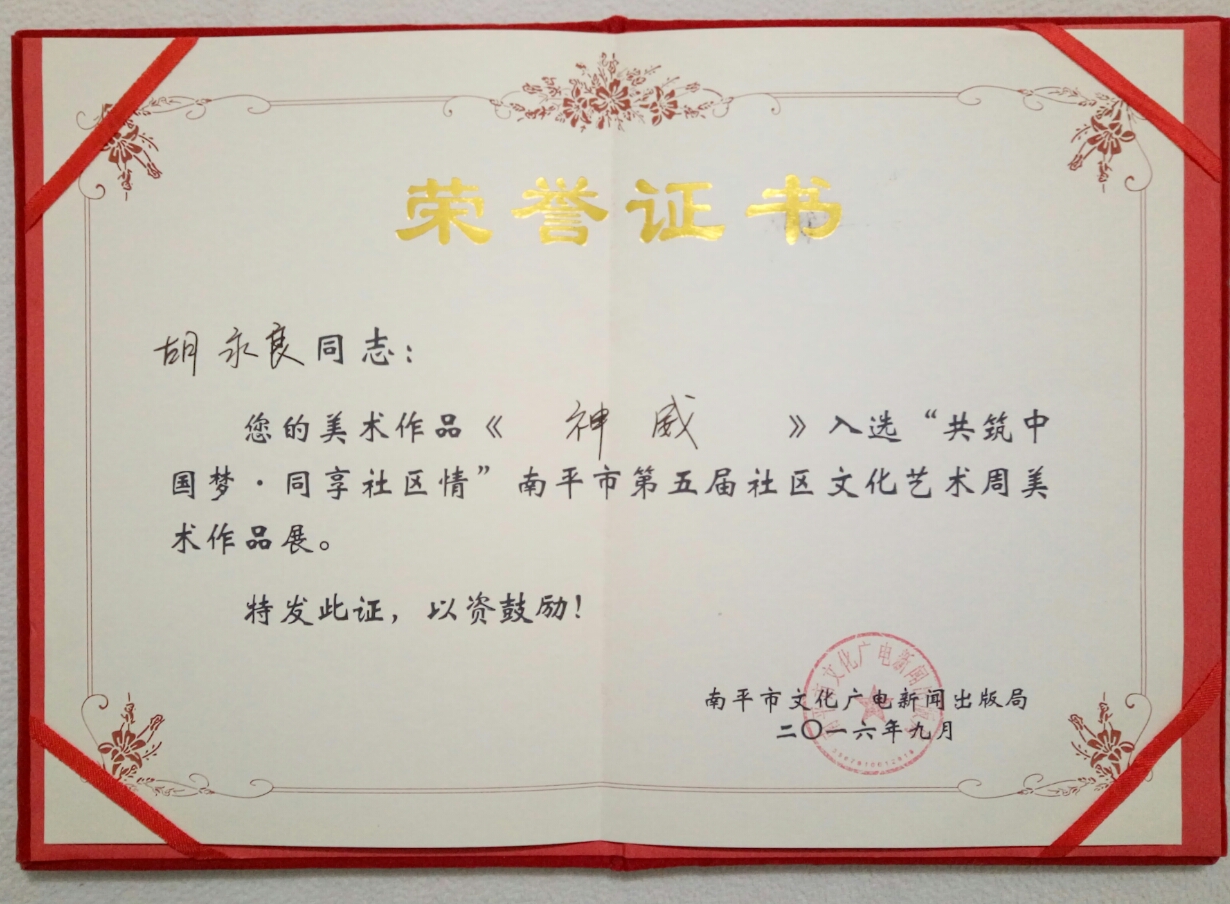 荣誉证书
胡永良同志：
您的美术作品《 神威 》入选“共筑中
国梦·同享社区情”南平市第五届社区文化艺术周美
术作品展。
特发此证，以资鼓励！
南平市文化广电新闻出版局
二〇一六年九月